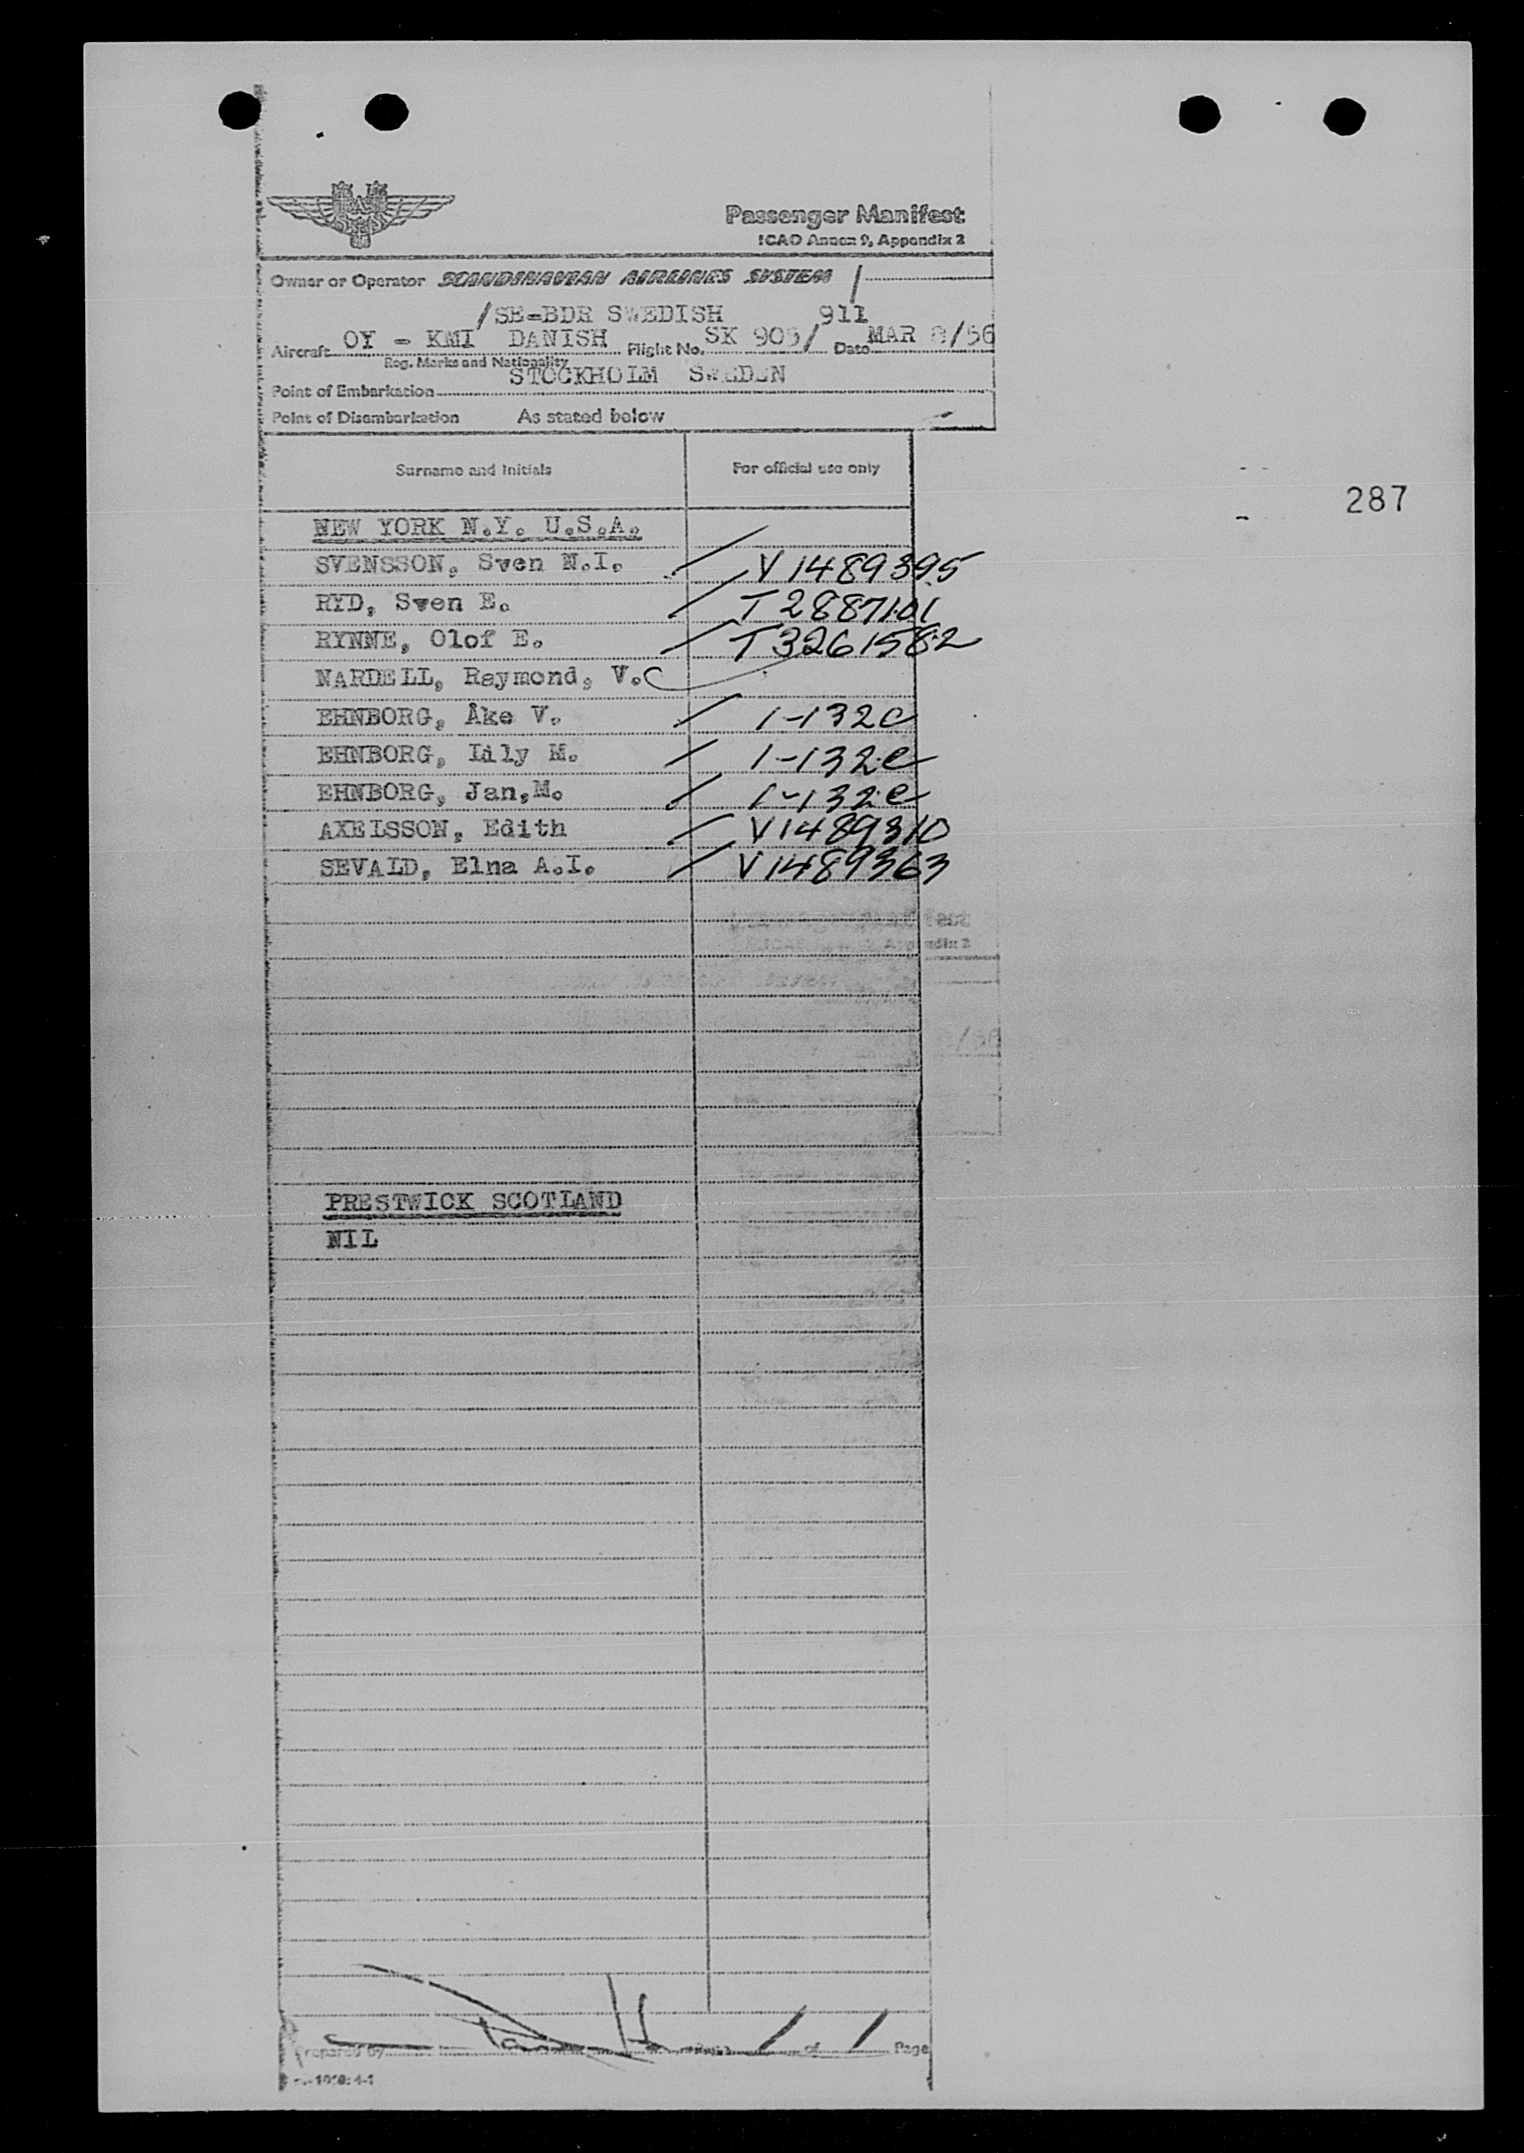 Passenger Manifest
ICAO Annex 9, Appendix 2
Owner or Operator SCANDINAVIAN AIRLINES SYSTEM /
/SE-BDR SWEDISH 911
Aircraft OY - KMI DANISH Flight No. SK 905/ Date MAR 8/56
Reg. Marks and Nationality
Point of Embarkation STOCKHOLM SWEDEN
Point of Disembarkation As stated below
Surname and Initials For official use only
287
NEW YORK N.Y. U.S.A.
SVENSSON, Sven N.I. V1489395
RYD, Sven E. T2887101
RYNNE, Olof E. T3261582
NARDELL, Raymond, V.
EHNBORG, Åke V. 1-132c
EHNBORG, Lily M. 1-132c
EHNBORG, Jan,M. 1-132c
AXELSSON, Edith V1489310
SEVALD, Elna A.I. V1489363
PRESTWICK SCOTLAND
NIL
Prepared by 1 of 1 Page